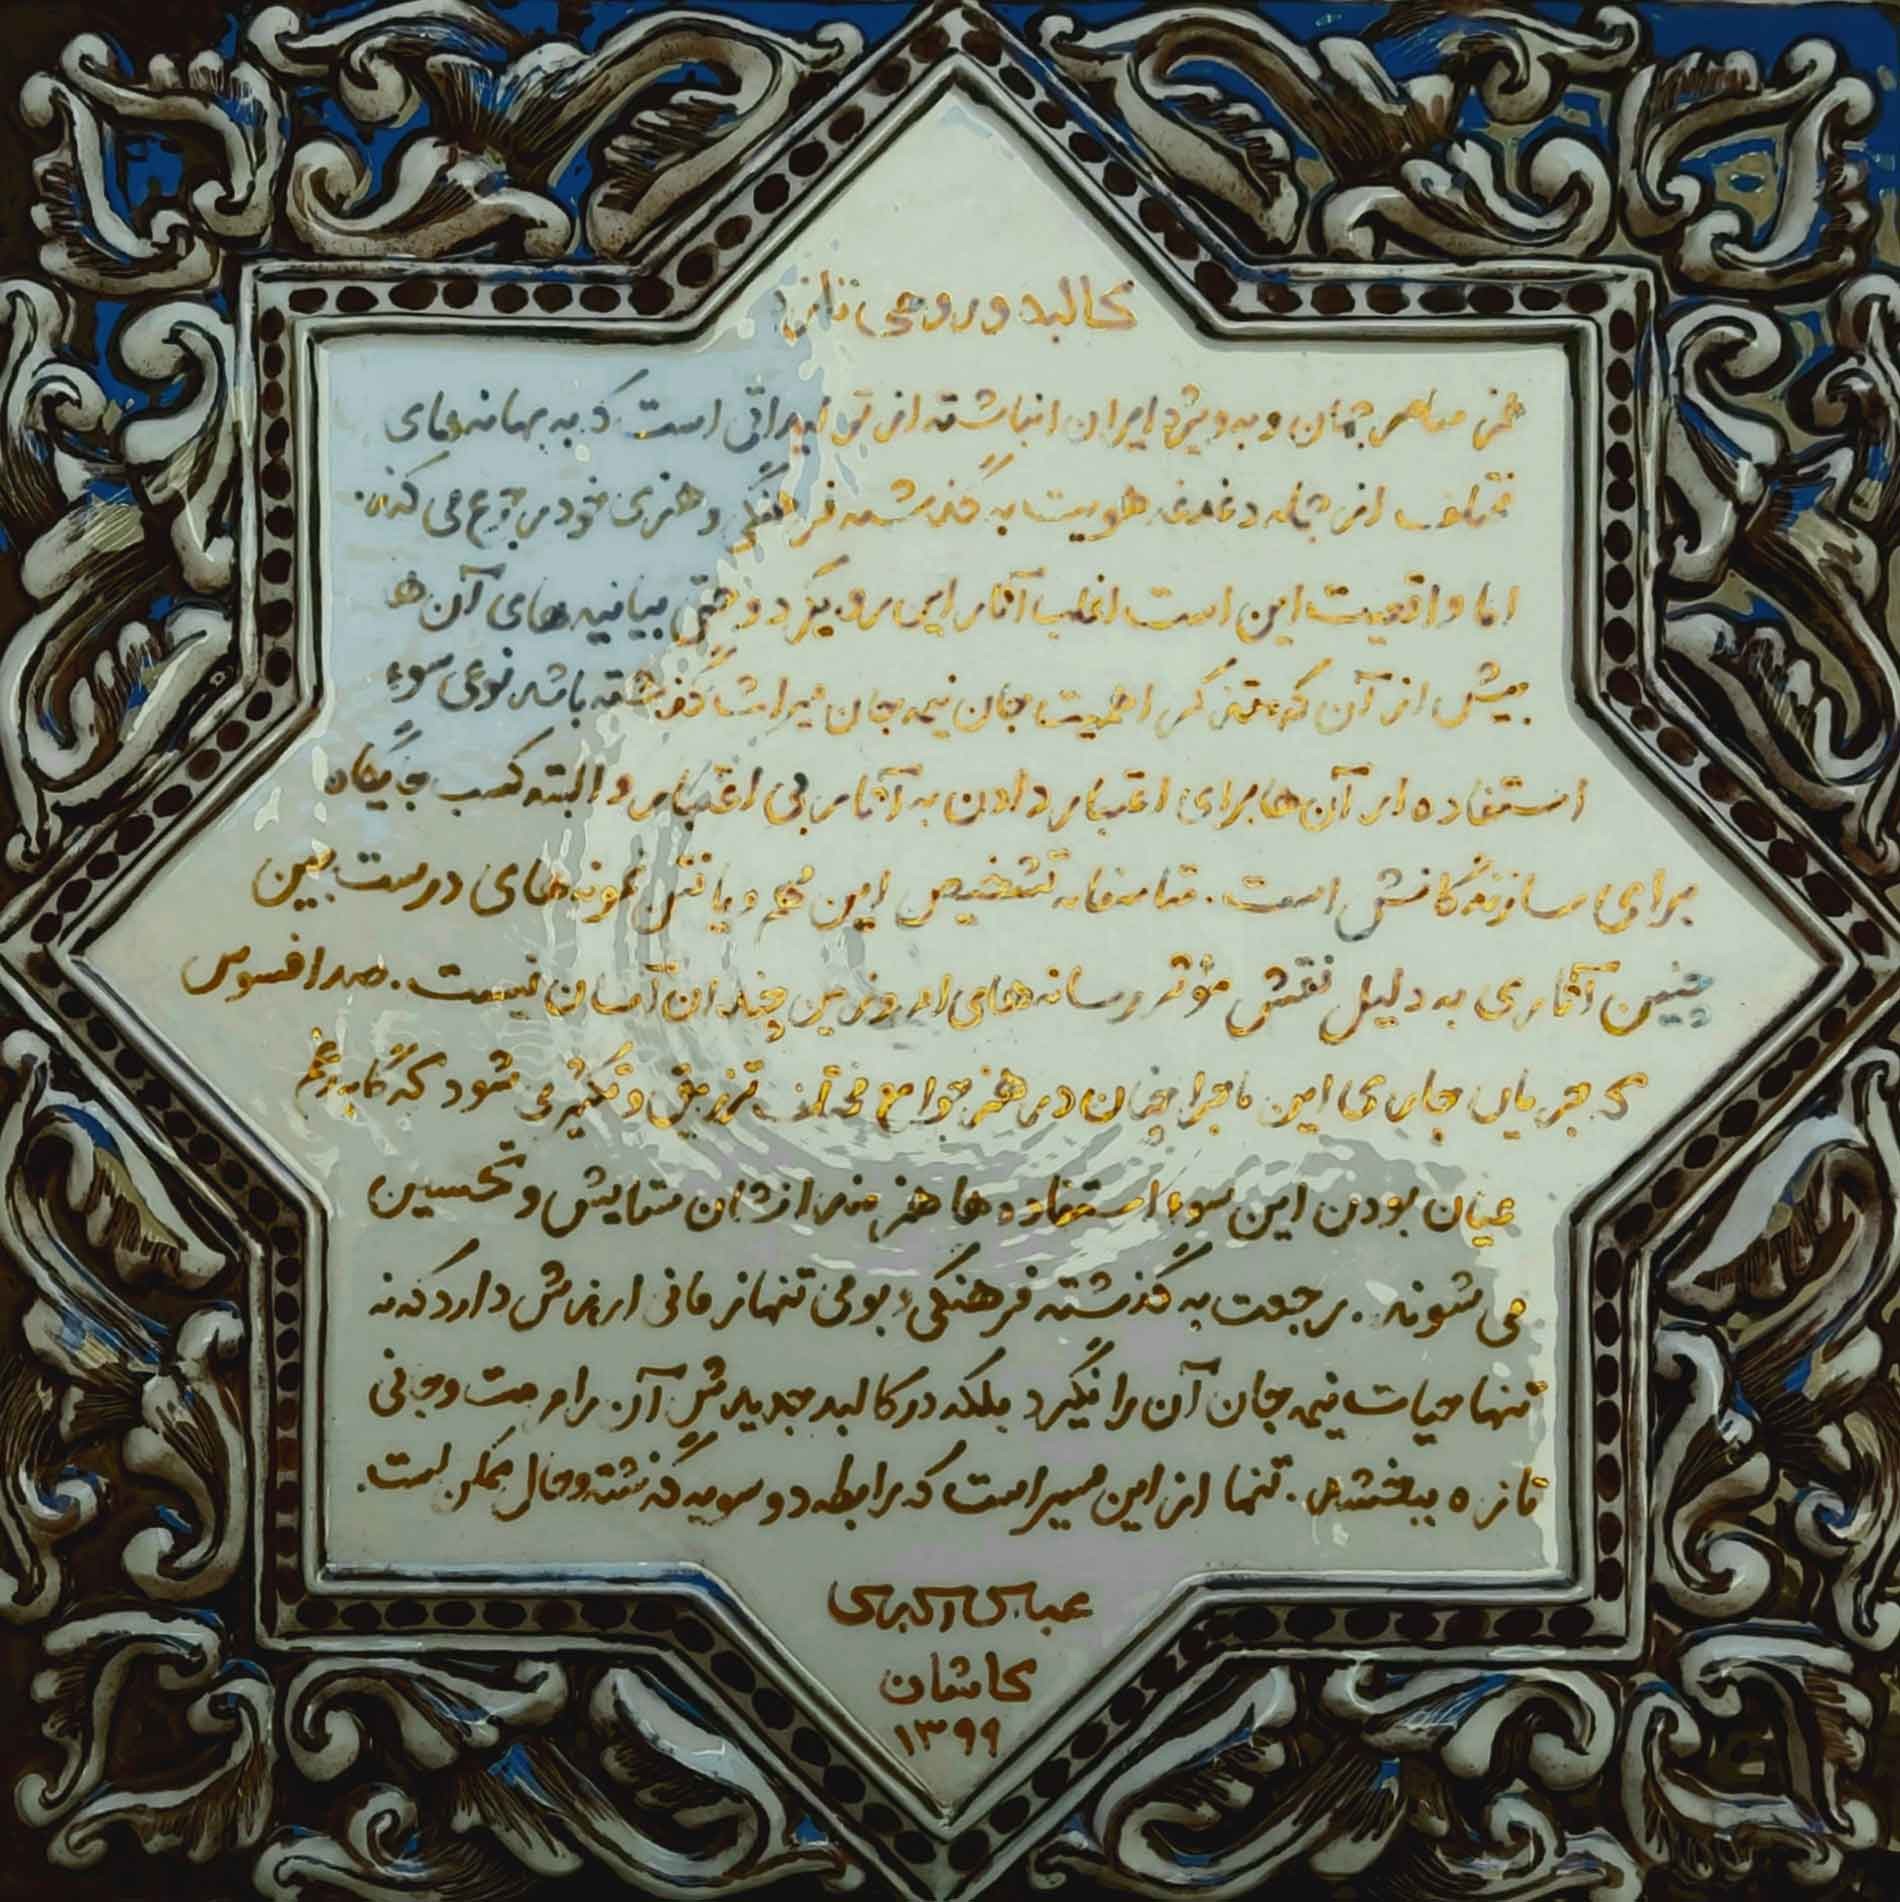 کالبد و روحی تازه
هنر معاصر جهان و به ویژه ایران انباشته از تولیداتی است که به بهانه‌های
مختلف از جمله دغدغه هویت به گذشته فرهنگی و هنری خود رجوع می کنند.
اما واقعیت این است اغلب آثار این رویکرد و حتی بیانیه های آن ها
بیش از آن که متذکر اهمیت جان نیمه جان میراث گذشته باشد نوعی سوء
استفاده از آن ها برای اعتبار دادن به آثار بی اعتبار و البته کسب جایگاه
برای سازندگانش است. متاسفانه تشخیص این مهم و یافتن نمونه های درست بین
چنین آثاری به دلیل نقش مؤثر رسانه های امروزین چندان آسان نیست. صد افسوس
که جریان جاری این ماجرا چنان در هنر جوامع مختلف تزریق و تکثیر می شود که گاه به رغم
عیان بودن این سوء استفاده ها هنرمندانشان ستایش و تحسین
می شوند. رجعت به گذشته فرهنگی و بومی تنها زمانی ارزش دارد که نه
تنها حیات نیمه جان آن را نگیرد بلکه در کالبد جدیدش آن را روحت و جانی
تازه ببخشد. تنها از این مسیر است که رابطه دو سویه گذشته و حال ممکن است.
عباس اکبری
کاشان
۱۳۹۹